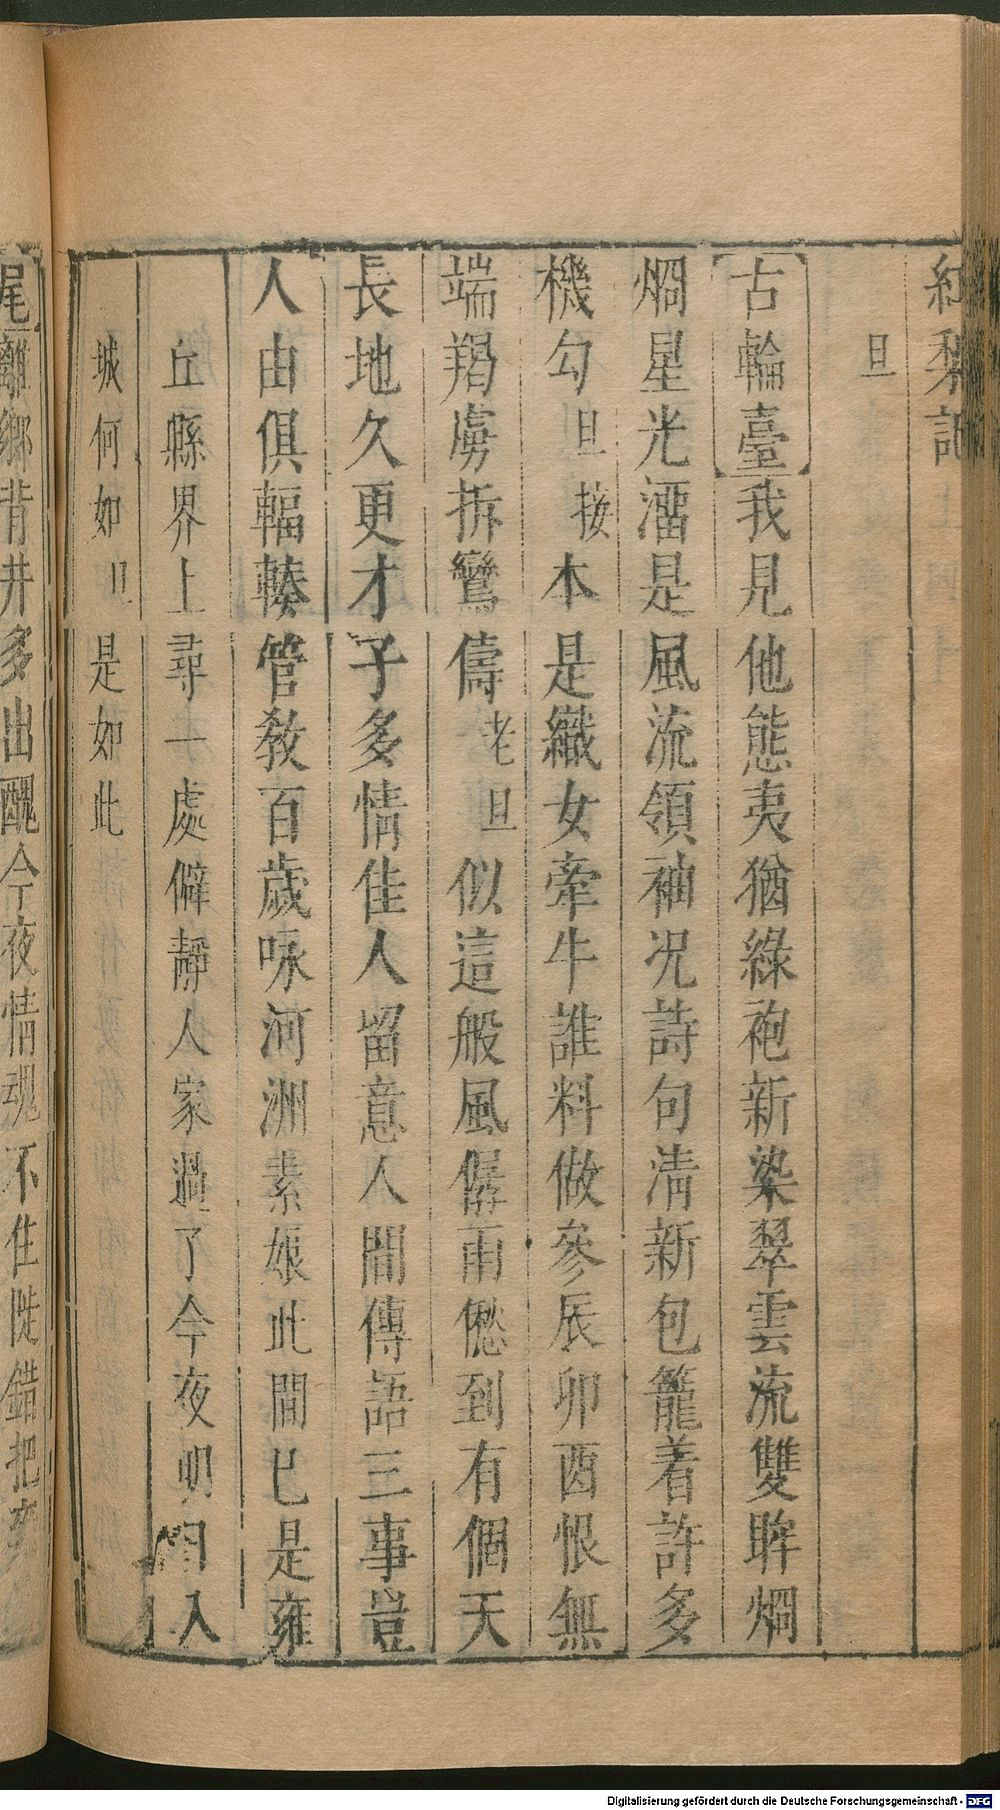 紅梨記
旦
古輪臺我見他態夷猶綠袍新染翠雲流雙眸爓
爓星光溜是風流領袖況詩句清新包籠着許多
機勾旦接本是織女牽牛誰料做參辰卯酉恨無
端羯虜拆鸞儔老旦似這般風僝雨僽到有個天
長地久更才子多情佳人留意人間傳語三事豈
人由俱輻輳管教百歲咏河洲素娘此間已是雍
丘縣界上尋一處僻靜人家過了今夜明日入
城何如旦是如此
尾離鄉背井多出醜今夜情魂不住陡錯把
Digitalisierung gefördert durch die Deutsche Forschungsgemeinschaft - DFG